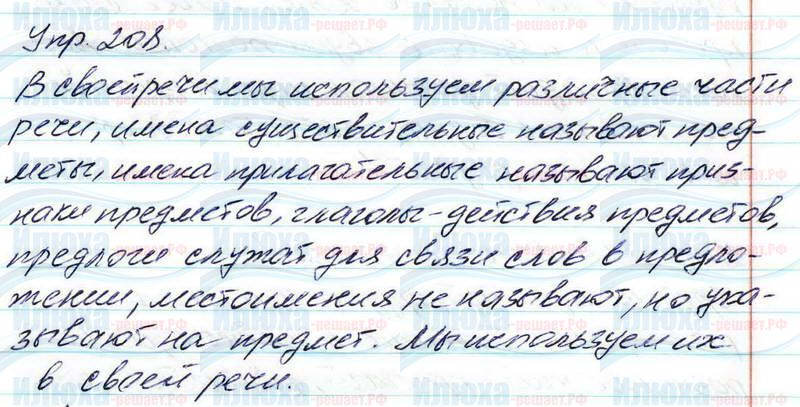 Упр. 208.
В своей речи мы используем различные части
речи, имена существительные называют пред-
меты, имена прилагательные называют приз-
наки предметов, глаголы - действия предметов,
предлоги служат для связи слов в предло-
жении, местоимения не называют, но ука-
зывают на предмет. Мы используем их
в своей речи.